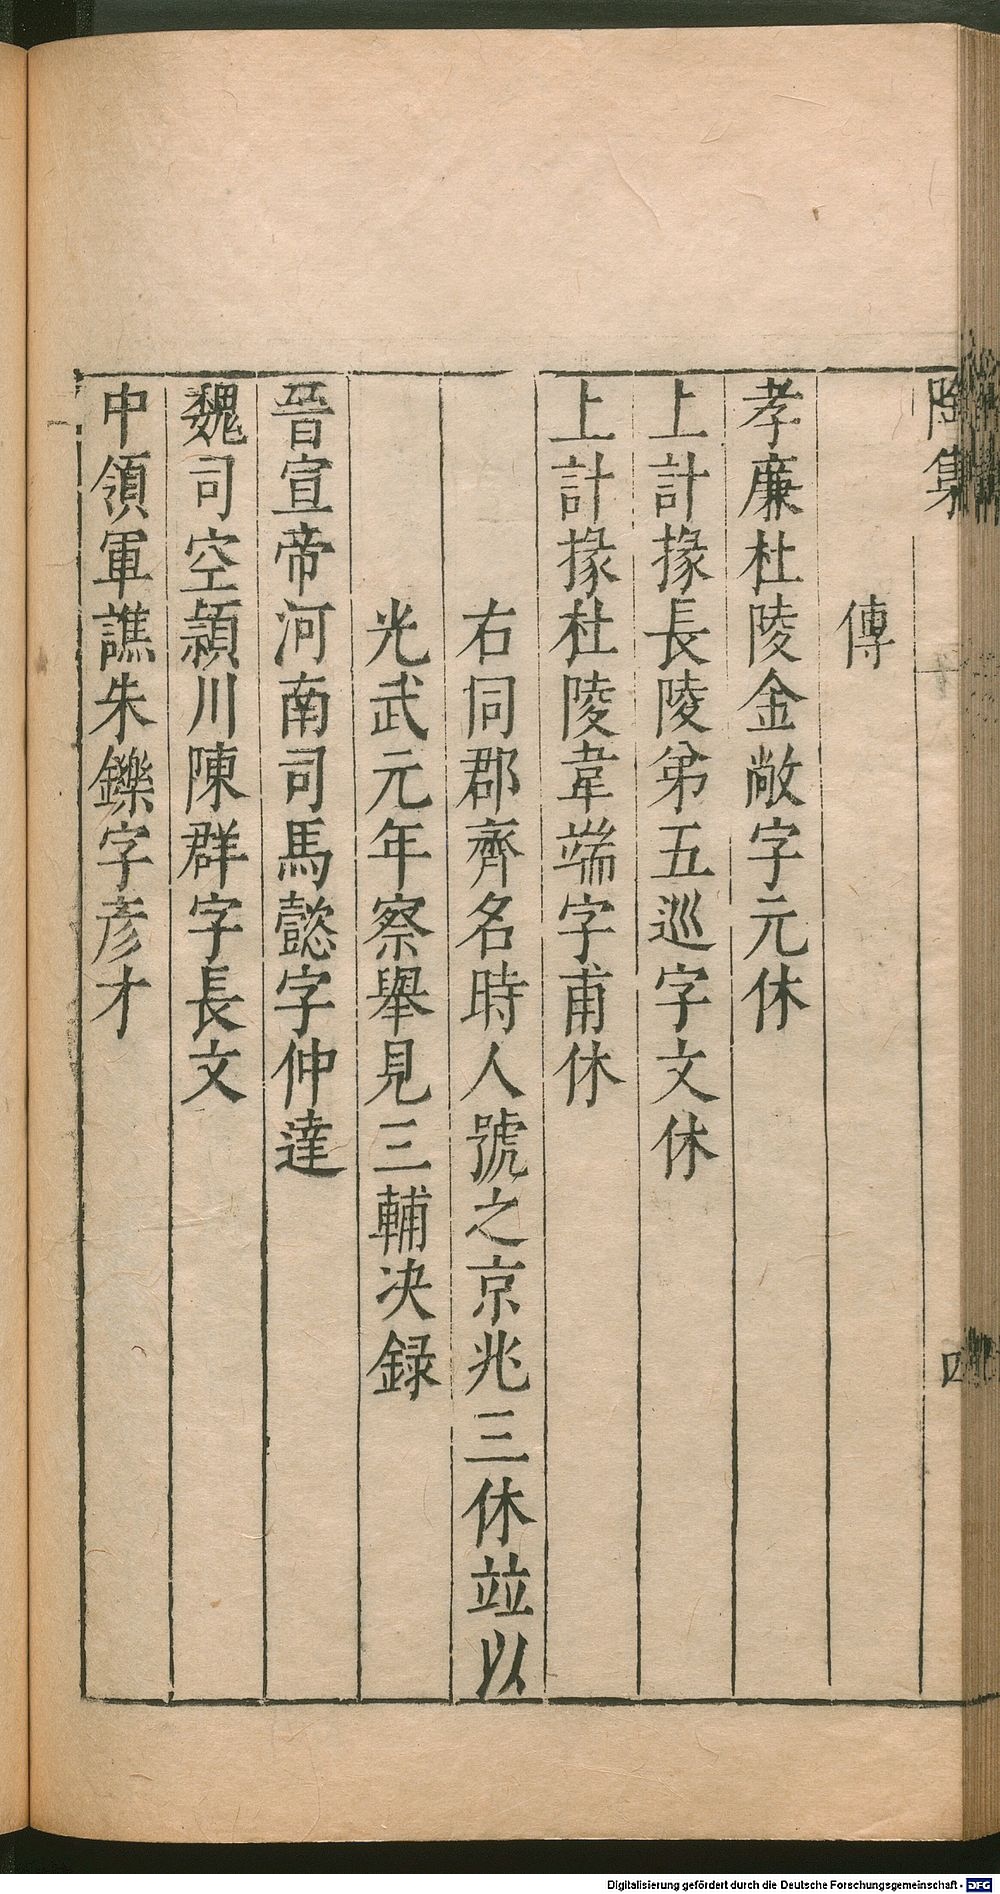 傳
孝廉杜陵金敞字元休
上計掾長陵弟五巡字文休
上計掾杜陵韋端字甫休
右同郡齊名時人號之京兆三休並以
光武元年察舉見三輔决錄
晉宣帝河南司馬懿字仲達
魏司空潁川陳群字長文
中領軍譙朱鑠字彥才
Digitalisierung gefördert durch die Deutsche Forschungsgemeinschaft - DFG